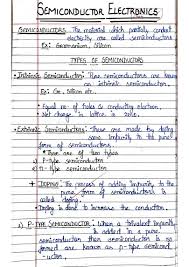 SEMICONDUCTOR ELECTRONICS
SEMICONDUCTORS: The material which partially conduct
electricity are called semiconductors
Ex: Germanium, Silicon
TYPES OF SEMICONDUCTORS
Intrinsic Semiconductor: Pure semiconductors are known
as intrinsic semiconductor.
Ex: Ge, Si
Equal no. of holes & conducting electron.
Net charge in lattice is zero.
Extrinsic Semiconductors: These are made by doping
some impurity to the pure
form of semiconductors.
These are of two types
a) P-type semiconductor
n-type semiconductor
DOPING: The process of adding impurity to the
pure form of semiconductors is called
doping.
Doping is done to increase the conduction.
a) P-TYPE SEMICONDUCTOR: When a trivalent impurity
is added in a pure
semiconductor then semiconductor is so
formed are known as p-type semicond-